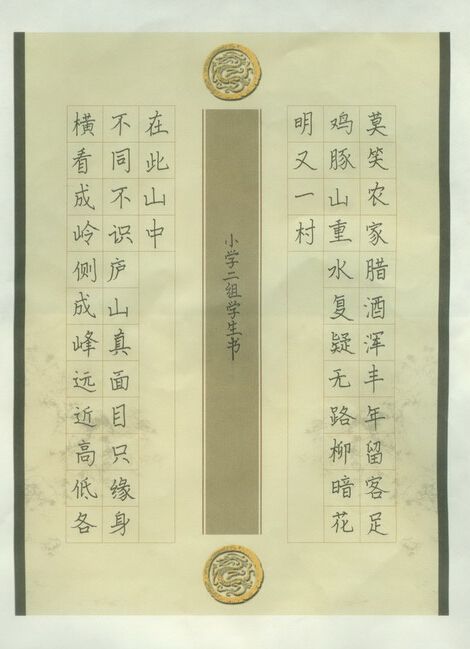 莫笑农家腊酒浑丰年留客足
鸡豚山重水复疑无路柳暗花
明又一村
小学二组学生书
横看成岭侧成峰远近高低各
不同不识庐山真面目只缘身
在此山中